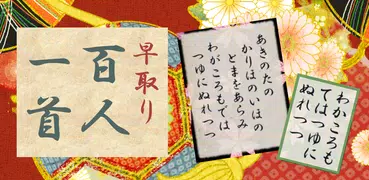 早取り
百人
一首
あきのたの
かりほのいほの
とまをあらみ
わがころもでは
つゆにぬれつつ
わかころも
てはつゆに
ぬれつつ